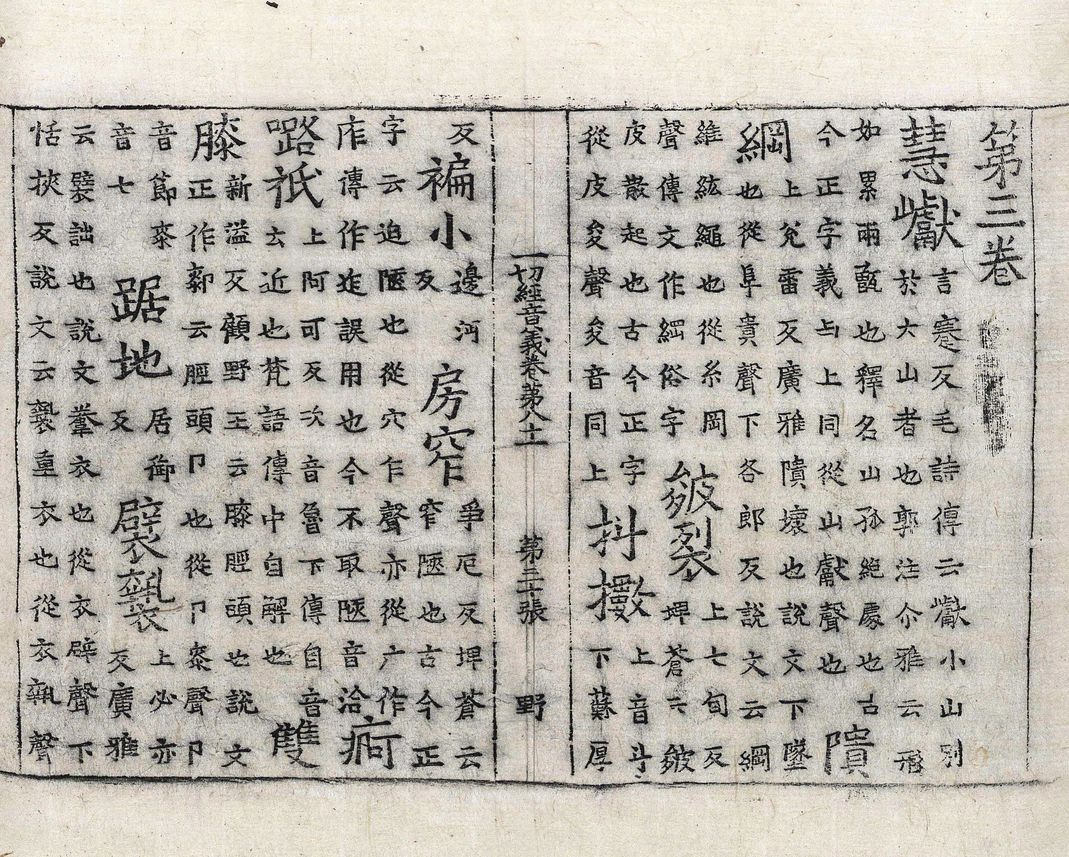 第三卷
慧巘
言蹇反毛詩傳云巘小山別
於大山者也郭注尒雅云形
如累兩甑也釋名山孤絕處也古
今正字義与上同從山獻聲也
隤
綱
上兊雷反廣雅隤壞也說文下墜
也從阜貴聲下各郎反說文云綱
維紘繩也從糸岡
聲傳文作䌉俗字
皴裂
上七旬反
埤蒼云皴
皮散起也古今正字
從皮夋聲夋音同上
抖擻
上音斗
下蘇厚
一切經音義卷第八十一 第三十張 野
反
褊小
邊沔
反
房窄
爭厄反埤蒼云
窄陿也古今正
字云迫陿也從穴乍聲亦從广作
庍傳作迮誤用也今不取陿音洽
痾
路祇
上阿可反次音魯下傳自音
云近也梵語傳中自解也
雙
膝
新溢反顧野王云膝脛頭也說文
正作厀云脛頭卪也從卪桼聲卪
音節桼
音七
踞地
居御
反
襞褺
上必亦
反廣雅
云襞詘也說文韏衣也從衣辟聲下
恬挾反說文云褺重衣也從衣執聲